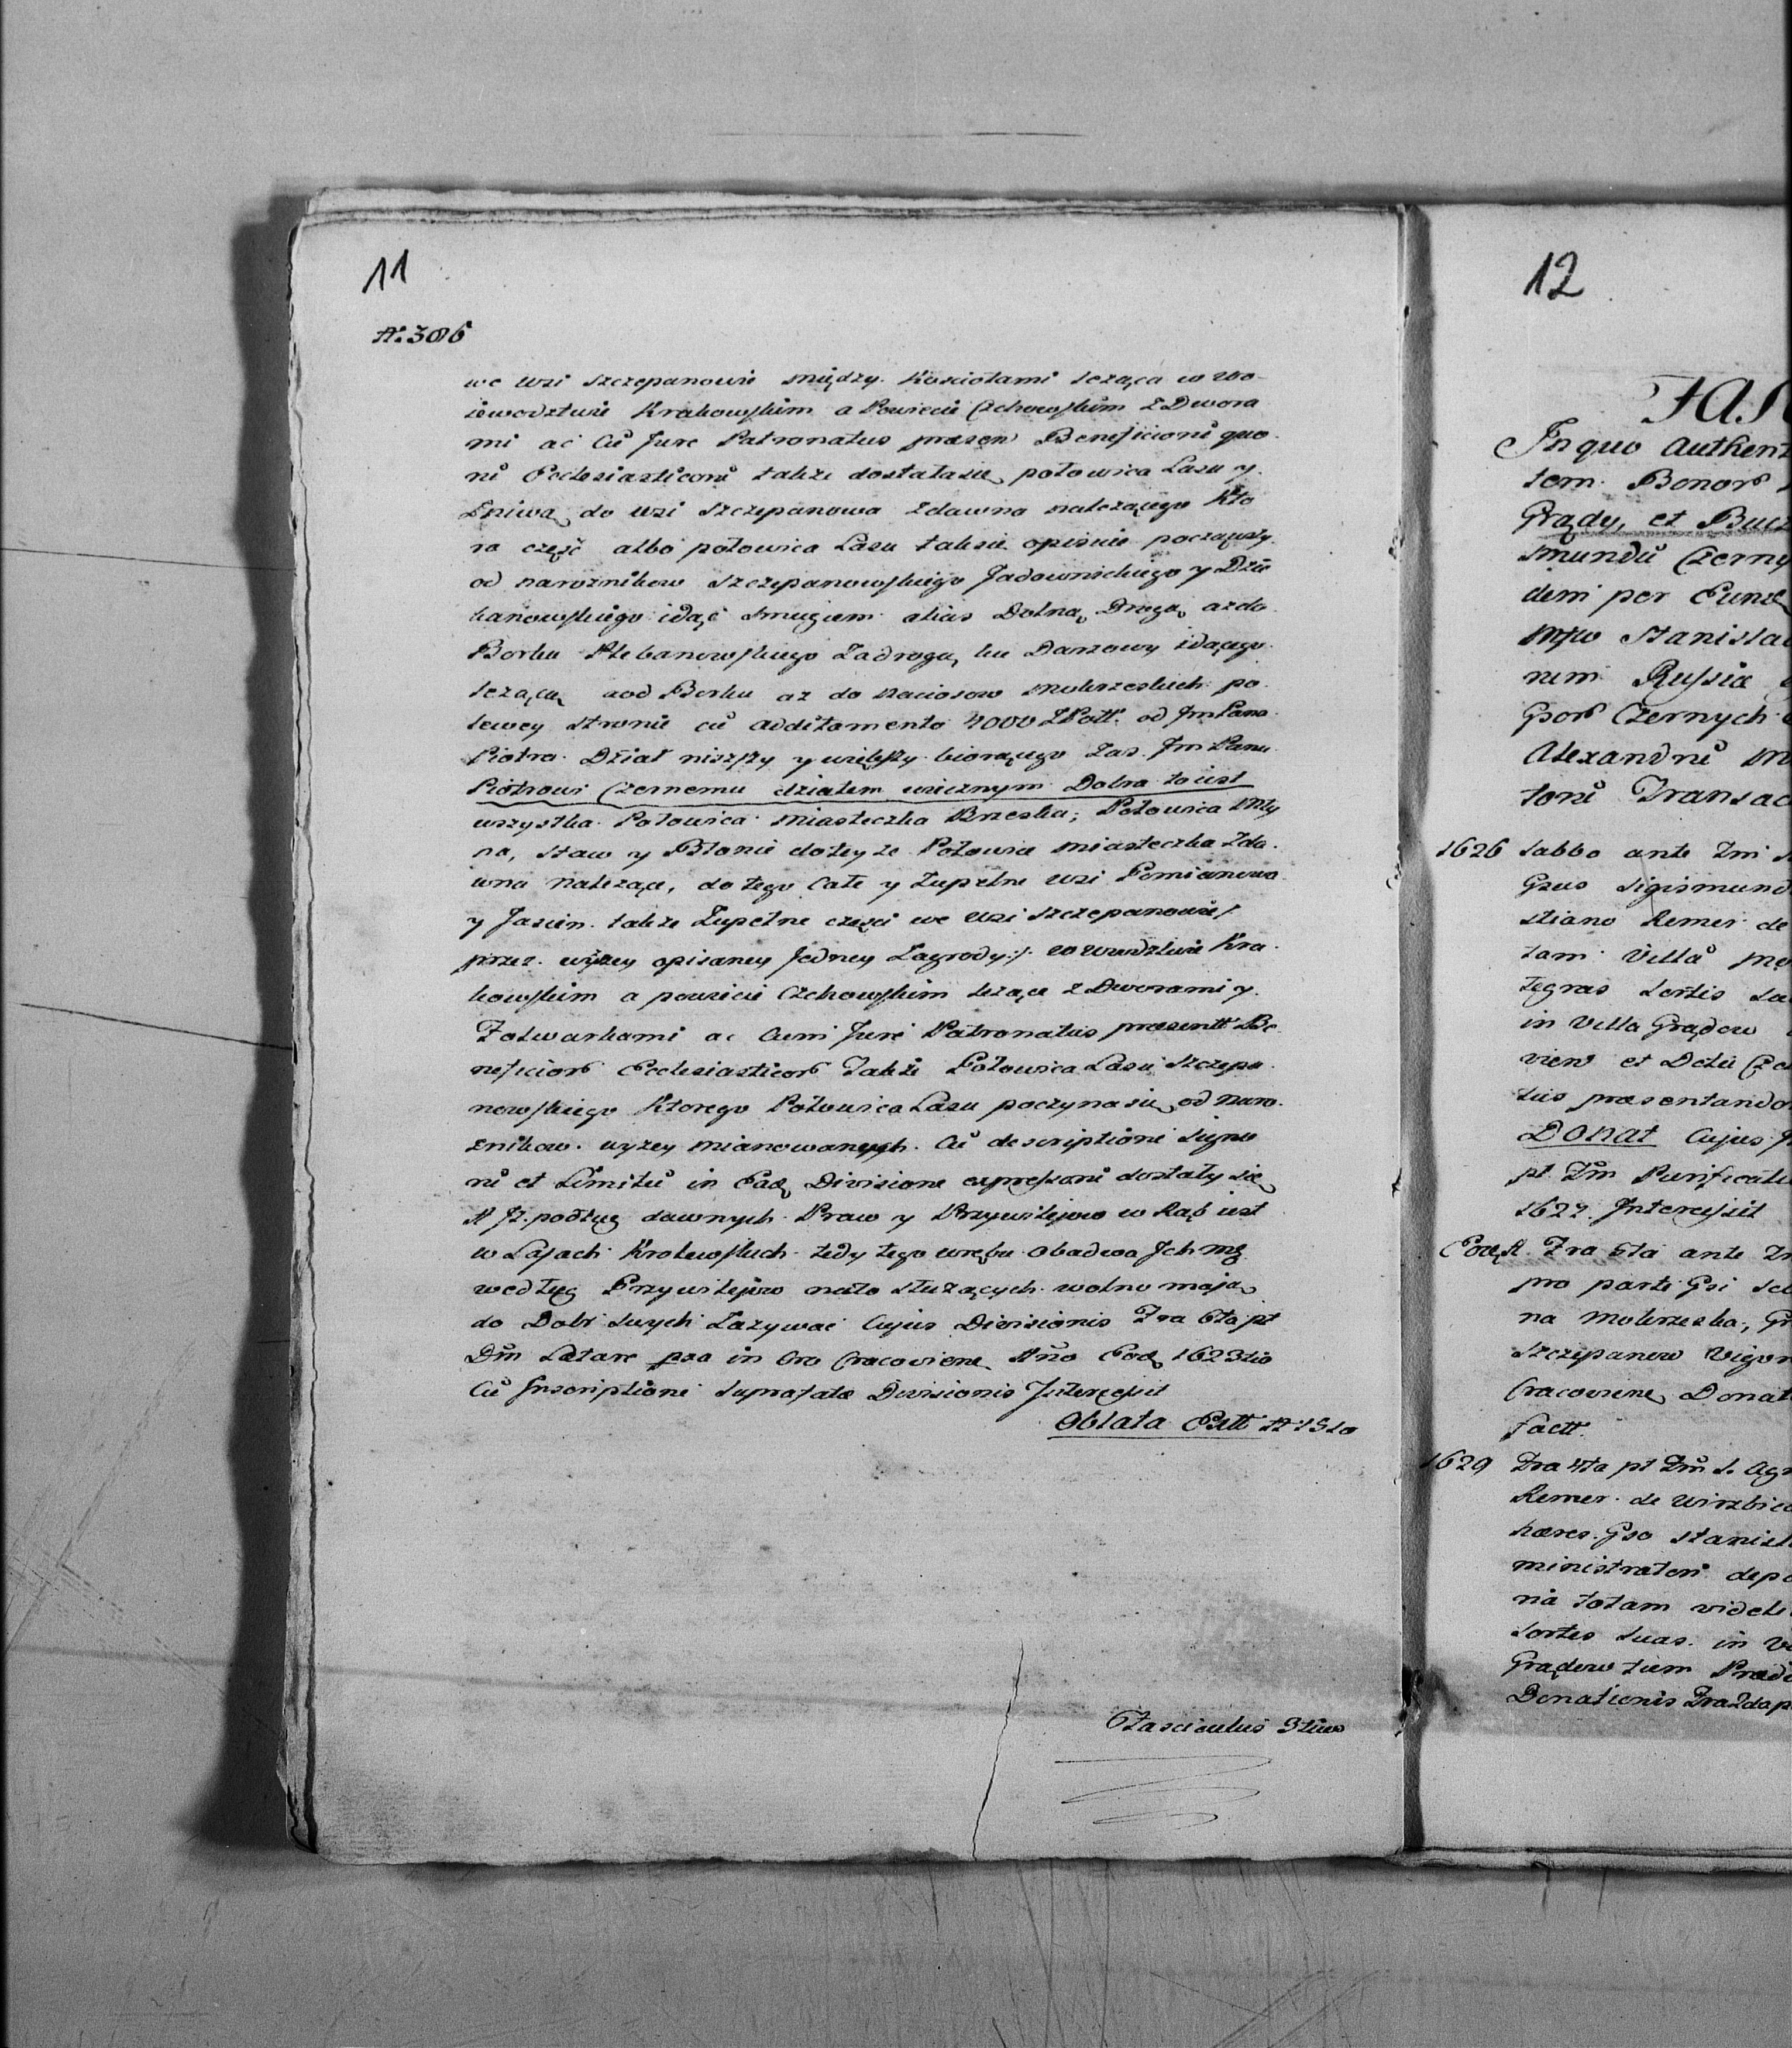 11
N: 306
we wsi Szczepanowie między Kosciołami leząca w Wo-
iewodztwie Krakowskim a Powiecie Czchowskim z Dwora
mi ac cũ Jure Patronatus præsen Beneficiorũ quo-
rũ Ecclesiasticorũ takze dostałasię połowica Lasu y
Zniwa do wsi Szczepanowa zdawna nalezącego Kto
ra część albo połowica Lasu taksie opisuie począwszy
od naroznikow Szczepanowskiego Jadownickiego y Dzie
kanowskiego idąć Smugiem alias Dolną Drogą azdo
Borku Plebanowskiego Zadrogą ku Darzowy idącego
lezącą aod Borku az do Naciosow Mokrzeskich po
lewey stronie cũ additamento 4000 ZPoll. od Jm Pana
Piotra Dział nizszy y większy biorącego Zas Jm Panu
Piotrowi Czernemu działem wiecznym Dobra to iest
wszystka Połowica Miasteczka Brzeska; Połowica Mły
na, Staw y Błonie dotey ze Połowice Miasteczka Zda-
wna nalezące, do tego Całe y Zupełne wsi Pomianowa
y Jasien takze Zupełne częsci we wsi Szczepanowie/
przez wyzey opisaney Jedney Zagrody:/ w Wwdztwie Kra-
kowskim a powiecie Czchowskim lezące z Dworami y
Folwarkami ac Cum Jure Patronatus præsentt Be
neficiorũ Ecclesiasticorũ Takze Połowica Lasu Szczepa
nowskiego Ktorego Połowica Lasu poczynasię od Naro-
znikow wyzey mianowanych Cũ descriptione Signo
rũ et Limitũ in Ead Divisione expressorũ dostały się
A Jz podług dawnych Praw y Przywilejow wRąb iest
w Lasach Krolewskich tedy tego wrębu obadwa Jch mę
według Przywilejow nato służących wolno mają
do Dobr swych Zazywać Cujus Divisionis Fra 6ta pt
Dm Lætare pxa in Cro Cracoviene Ano Eod 1623tio
Cũ Inscriptione Supratatæ Divisionis Jntercessit
Oblata Extt N:
Fasciculus 3tius
12
FAS
Jn quo Authent
tem Bonorũ
Grądy, et Bucz
smundũ Czerny
dem per Eund
Mjw Stanisla
num Russiæ
Gsorũ Czernych
Alexandrũ M
torũ Transac
1626 Sabbo ante Dm
Gsus Sigismund
stiano Remer de
tam Villã Mo
tegras Sortis
in Villa Grądow
vien et Dctu Cz
tus præsentando
Donat Cujus
pt Dm Purificati
1627 Jntercessit
Eod A. Fra 6ta ante D
pro parte Gsi
na Mokrzeska, Gr
Szczepanow Vigor
Cracoviene Donat
factt
1629 Fra 4ta pt Dm S. Ag
Remer de Wirzbic
hæres Gso Stanisl
ministratori depo
nia totam videli
Sortes suas in V
Grądow tum Præd
Donationis Fra 2da p